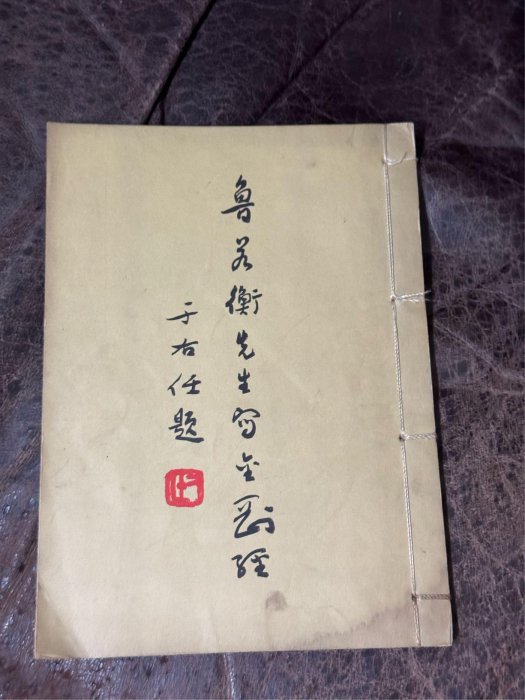 魯若衡先生寫金剛經
于右任題